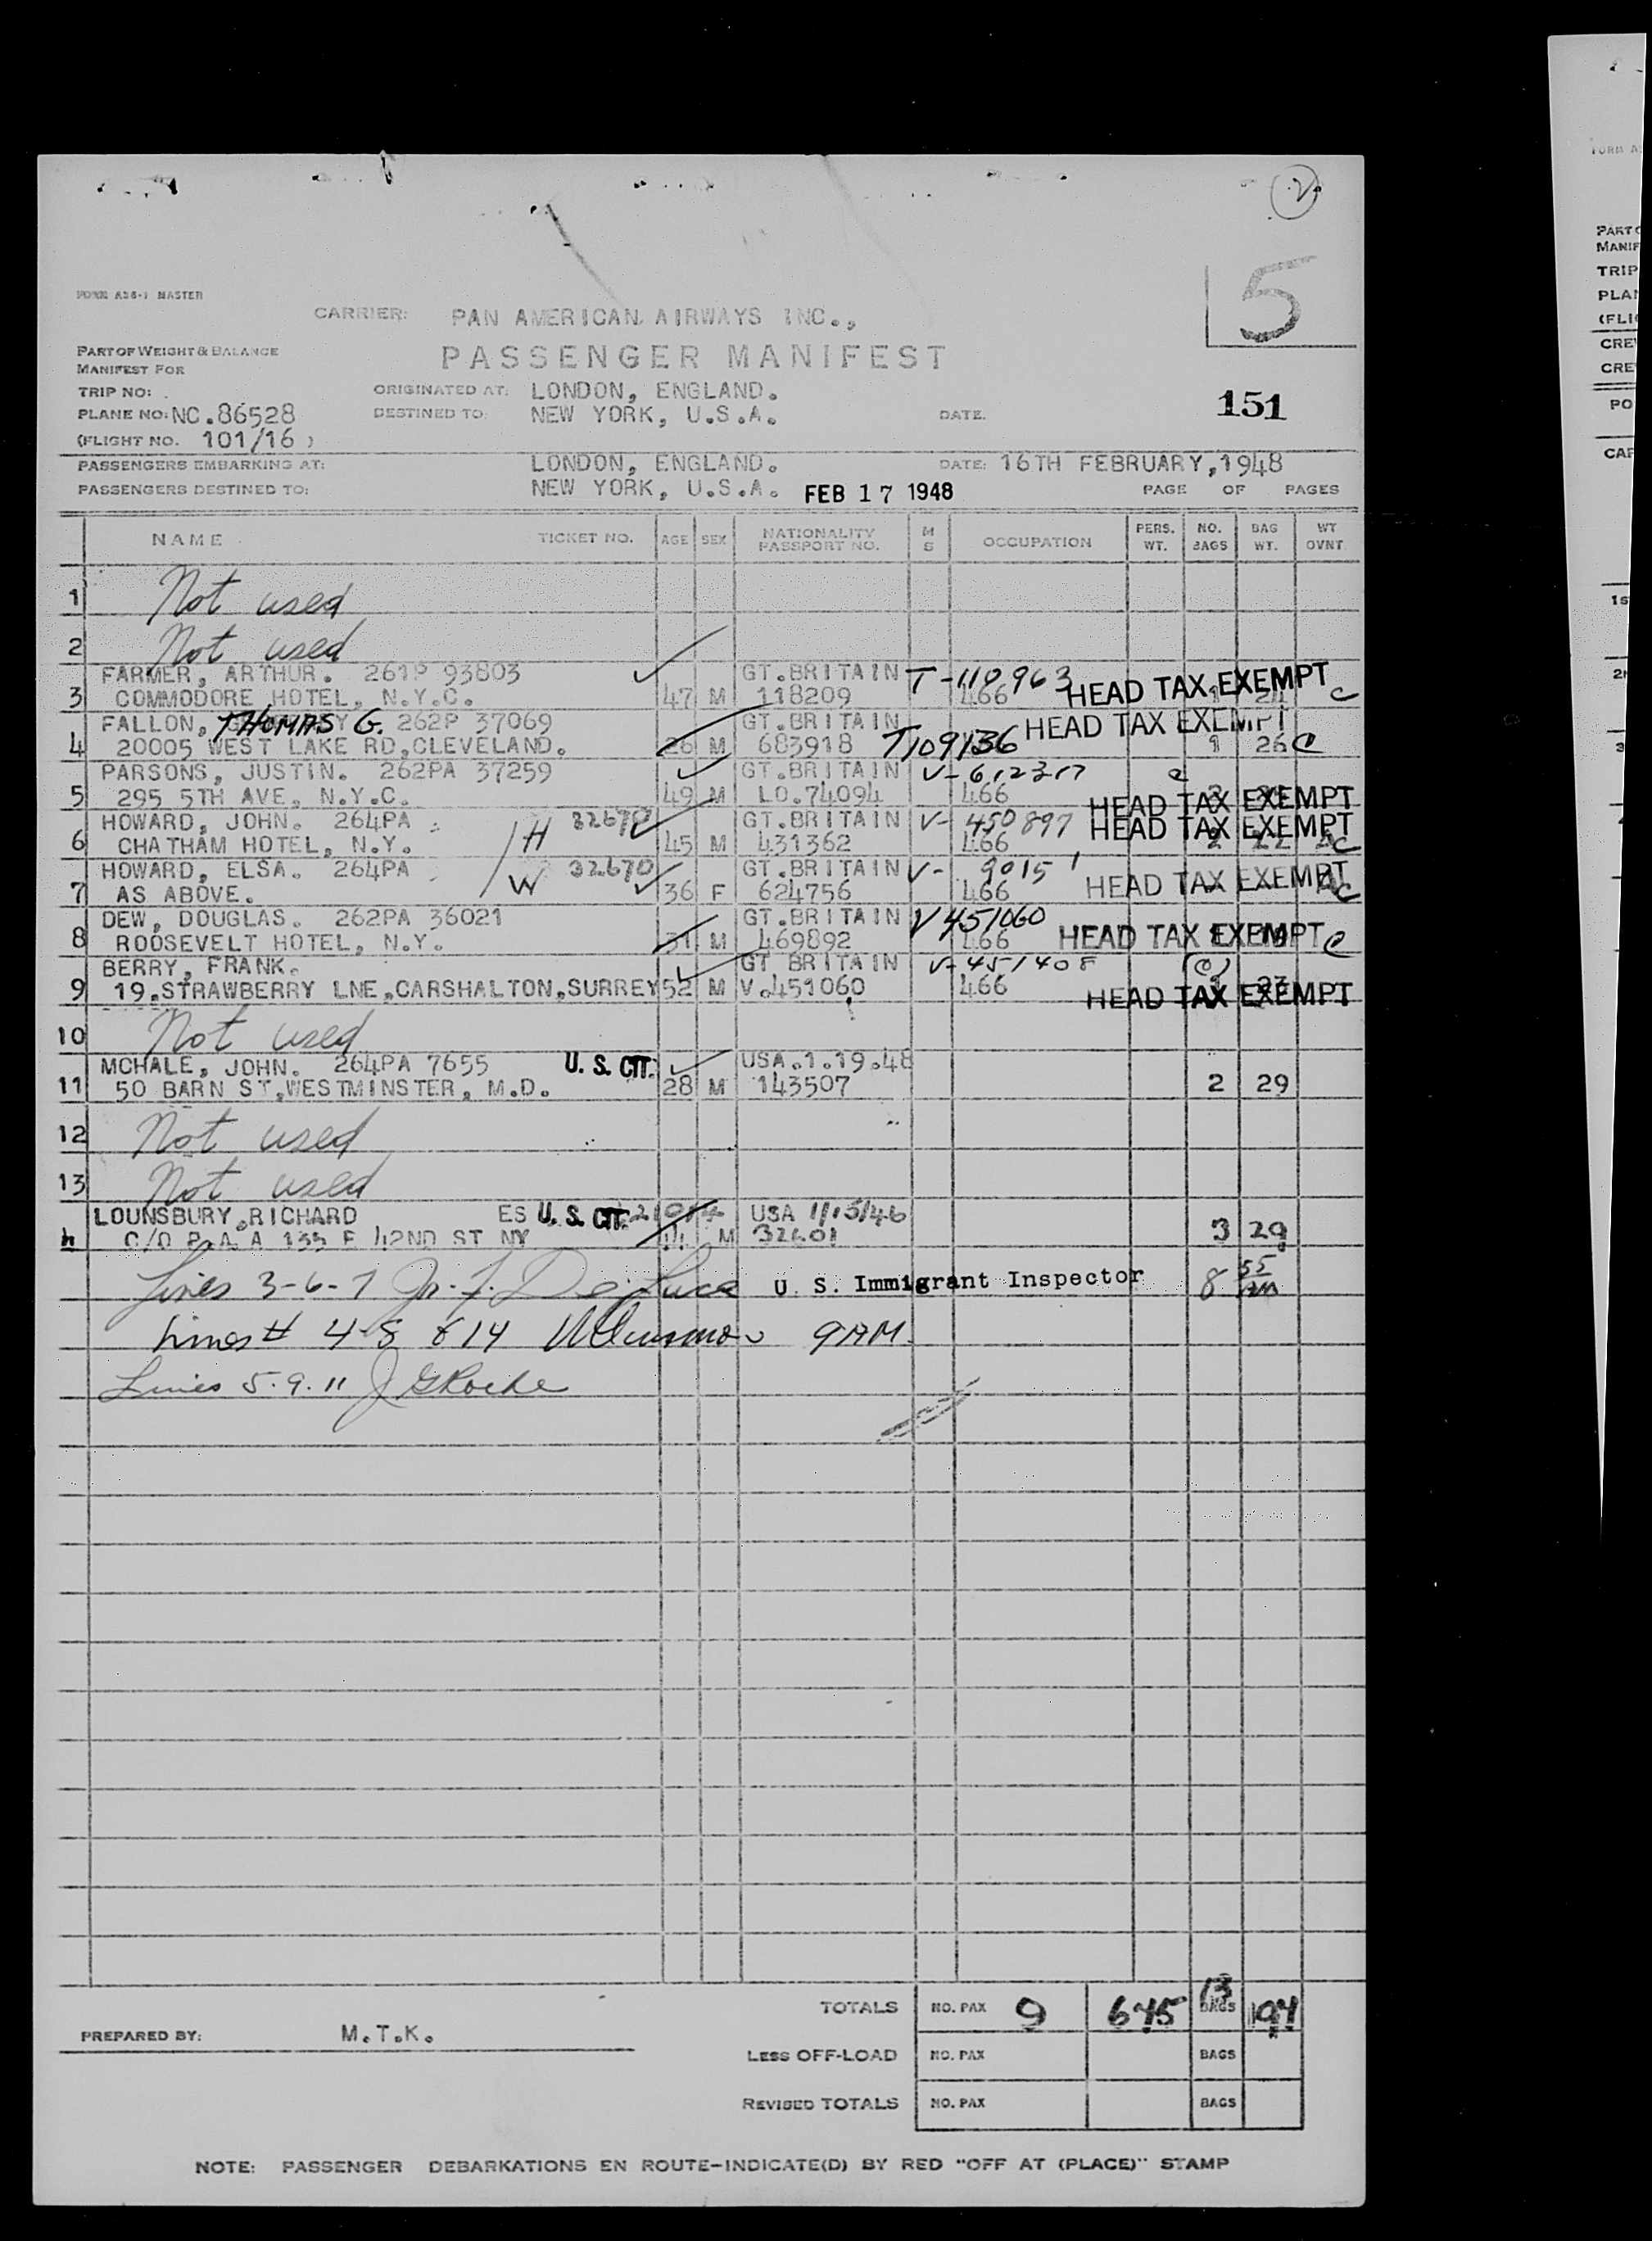 2
5
FORM AS6-1 MASTER
CARRIER: PAN AMERICAN AIRWAYS INC.,
PART OF WEIGHT & BALANCE
MANIFEST FOR
PASSENGER MANIFEST
TRIP NO:
ORIGINATED AT: LONDON, ENGLAND.
PLANE NO: NC.86528 DESTINED TO: NEW YORK, U.S.A. DATE. 151
(FLIGHT NO. 101/16 )
PASSENGERS EMBARKING AT: LONDON, ENGLAND. DATE: 16TH FEBRUARY,1948
PASSENGERS DESTINED TO: NEW YORK, U.S.A. FEB 17 1948 PAGE OF PAGES
NAME TICKET NO. AGE SEX NATIONALITY PASSPORT NO. M S OCCUPATION PERS. WT. NO. BAGS BAG WT. WT OVNT
1 Not used
2 Not used
FARMER, ARTHUR. 261P 93803 GT.BRITAIN T-110963
3 COMMODORE HOTEL, N.Y.C. 47 M 118209 466 HEAD TAX EXEMPT C
FALLON, THOMAS G. 262P 37069 GT.BRITAIN HEAD TAX EXEMPT
4 20005 WEST LAKE RD,CLEVELAND. 26 M 683918 T109136 1 26 C
PARSONS, JUSTIN. 262PA 37259 GT.BRITAIN V-612317
5 295 5TH AVE, N.Y.C. 49 M LO.74094 466 HEAD TAX EXEMPT
HOWARD, JOHN. 264PA H 32670 GT.BRITAIN V-450897 HEAD TAX EXEMPT
6 CHATHAM HOTEL, N.Y. 45 M 431362 466 2 22 C
HOWARD, ELSA. 264PA W 32670 GT.BRITAIN V- 9015
7 AS ABOVE. 36 F 624756 466 HEAD TAX EXEMPT C
DEW, DOUGLAS. 262PA 36021 GT.BRITAIN V451060
8 ROOSEVELT HOTEL, N.Y. 31 M 469892 466 HEAD TAX EXEMPT C
BERRY, FRANK. GT BRITAIN V-451408
9 19.STRAWBERRY LNE,CARSHALTON,SURREY 52 M V.451060 466 HEAD TAX EXEMPT
10 Not used
MCHALE, JOHN. 264PA 7655 U. S. CIT. USA.1.19.48
11 50 BARN ST,WESTMINSTER, M.D. 28 M 143507 2 29
12 Not used
13 Not used
LOUNSBURY,RICHARD ES U. S. CIT. USA 1/15/46
C/O P.A A 135 E 42ND ST NY 44 M 32601 3 29
Lines 3-6-7 Jn. F. De Luca U. S. Immigrant Inspector 8 55 am
Lines # 4-8 & 14 9 AM
Lines 5.9.11 J G Roche
TOTALS NO. PAX 9 645 13 BAGS 194
PREPARED BY: M.T.K.
LESS OFF-LOAD NO. PAX BAGS
REVISED TOTALS NO. PAX BAGS
NOTE: PASSENGER DEBARKATIONS EN ROUTE-INDICATE(D) BY RED "OFF AT (PLACE)" STAMP